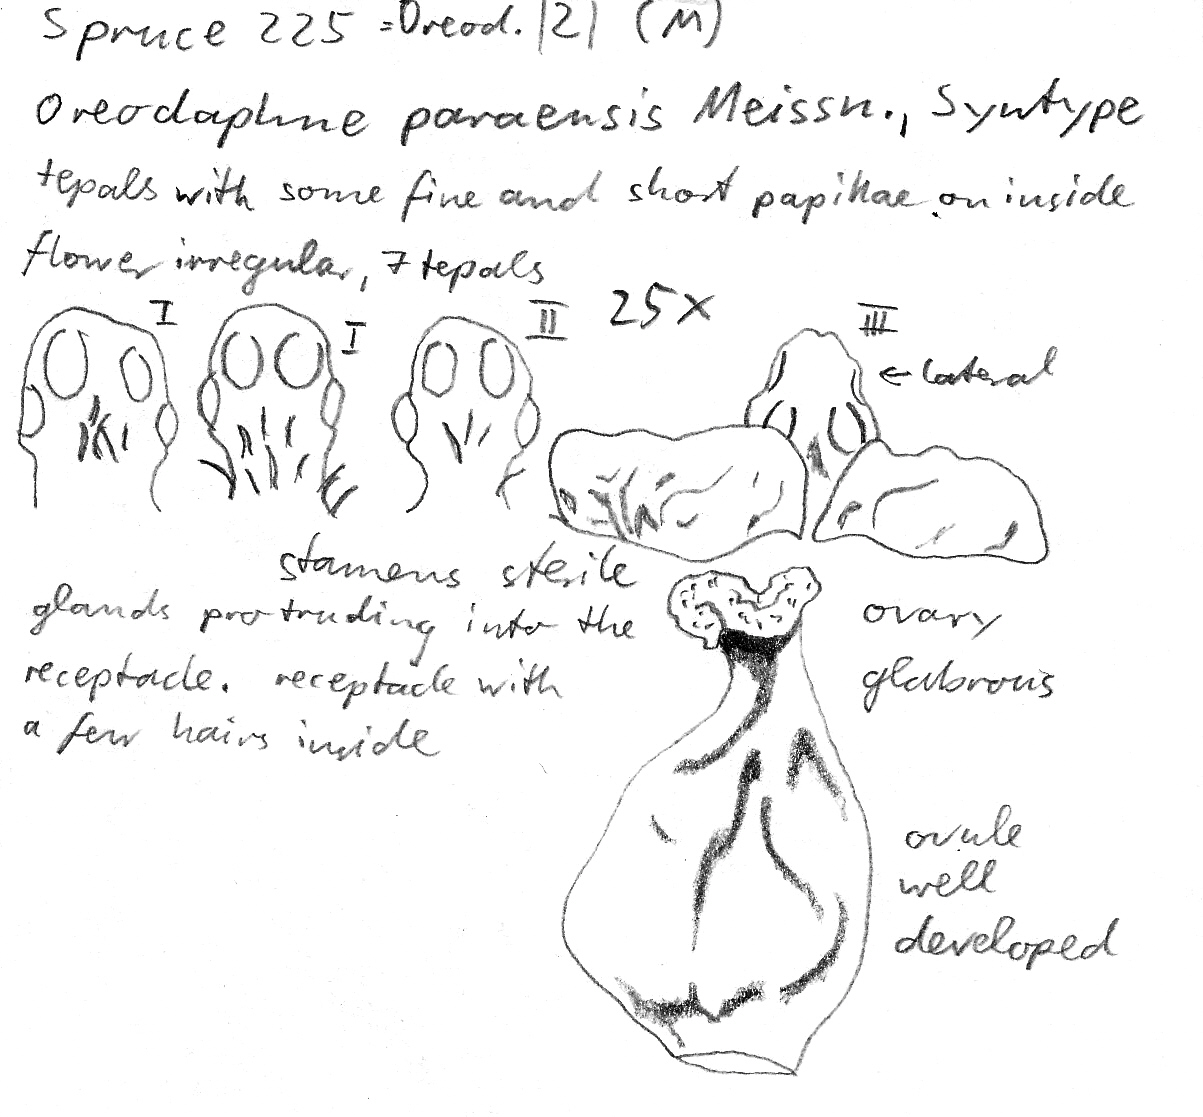 Spruce 225 = Oread. |2| (M)
Oreodaphne paraensis Meissn., Syntype
tepals with some fine and short papillae on inside
flower irregular, 7 tepals
I I II 25x III
← lateral
stamens sterile
glands protruding into the
receptacle. receptacle with
a few hairs inside
ovary
glabrous
ovule
well
developed